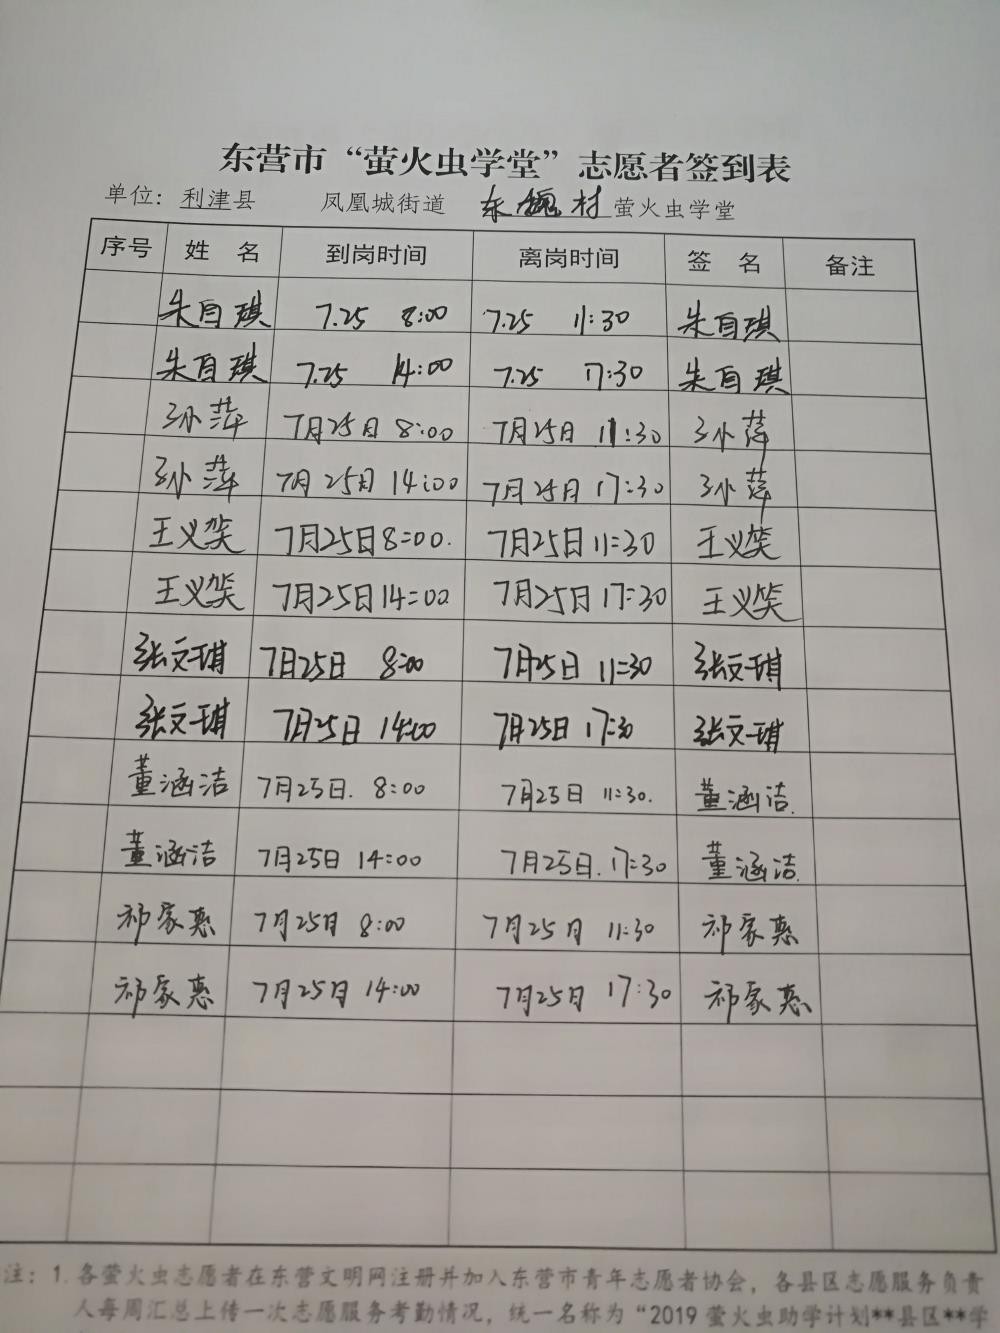 东营市“萤火虫学堂”志愿者签到表
单位：利津县 凤凰城街道 东 村 萤火虫学堂
序号 姓 名 到岗时间 离岗时间 签 名 备注
朱自琪 7.25 8:00 7.25 11:30 朱自琪
朱自琪 7.25 14:00 7.25 17:30 朱自琪
孙萍 7月25日 8:00 7月25日 11:30 孙萍
孙萍 7月25日 14:00 7月25日 17:30 孙萍
王义笑 7月25日 8:00. 7月25日 11:30 王义笑
王义笑 7月25日 14:00 7月25日 17:30 王义笑
张文琪 7月25日 8:00 7月25日 11:30 张文琪
张文琪 7月25日 14:00 7月25日 17:30 张文琪
董涵洁 7月25日. 8:00 7月25日 11:30. 董涵洁.
董涵洁 7月25日 14:00 7月25日. 17:30 董涵洁.
祁家惠 7月25日 8:00 7月25日 11:30 祁家惠
祁家惠 7月25日 14:00 7月25日 17:30 祁家惠
注：1. 各萤火虫志愿者在东营文明网注册并加入东营市青年志愿者协会，各县区志愿服务负责
人每周汇总上传一次志愿服务考勤情况，统一名称为“2019 萤火虫助学计划**县区**学